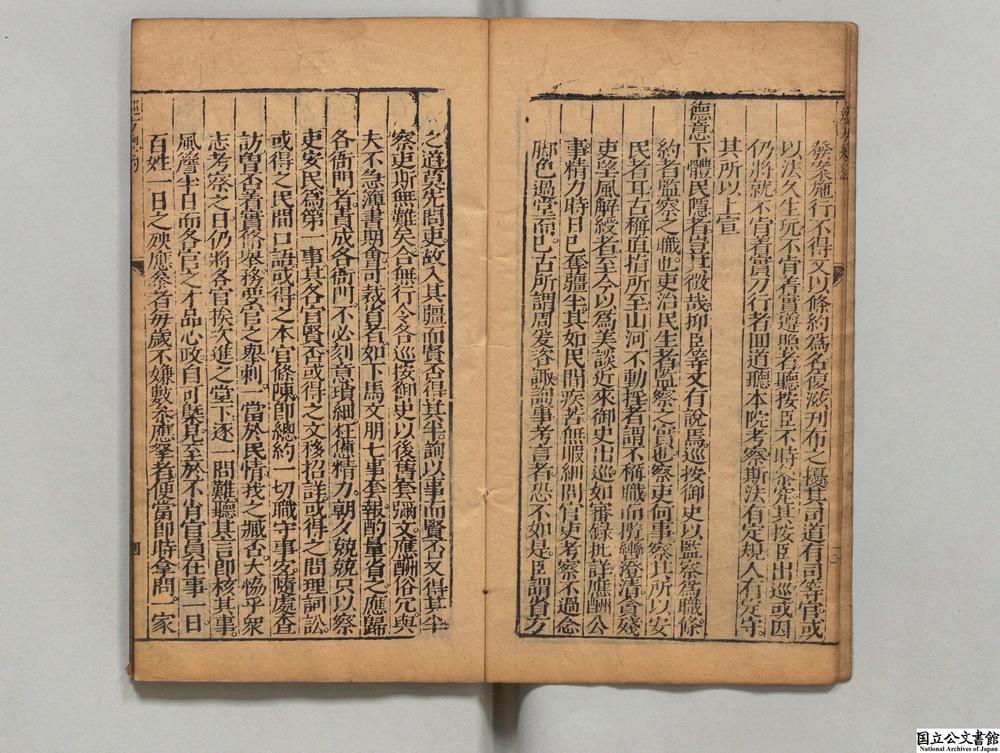 發案施行不得又以條約爲名復滋刊布之擾其司道有司等官或
以法久生玩不肯着實遵照者聽按臣不時參究其按臣出巡或因
仍將就不肯着實力行者回道聽本院考察斯法有定規人有定守
其所以上宣
德意下體民隱者豈其微哉抑臣等又有說焉巡按御史以監察爲職條
約者監察之職也吏治民生者監察之實也察吏何事察其所以安
民者耳古稱直指所至山河不動搖者謂不稱職而攬轡澄清貪殘
吏望風解綬者至今以爲美談近來御史出巡如審錄批詳應酬公
事精力時日已奪強半其如民間疾苦無暇細問官吏考察不過念
脚色過堂而已古所謂周爰咨諏詢事考言者恐不如是臣謂省方
之道莫先問吏故入其疆而賢否得其半詢以事而賢否又得其半
察吏斯無難矣合無行令各巡按御史以後舊套彌文應酬俗冗與
夫不急簿書期會可裁省者如下馬文朋七事套報酌量省之應歸
各衙門者責成各衙門不必刻意瑣細枉憊精力朝夕兢兢只以察
吏安民爲第一事其各官賢否或得之文移招詳或得之問理詞訟
或得之民間口語或得之本官條陳卽總約一切職守事宜隨處查
訪曾否着實修舉務要官之舉刺一當於民情我之臧否大恊乎衆
志考察之日仍將各官挨次進之堂下逐一問難聽其言卽核其事
風簷半日而各官之才品心政自可槩見至於不肖官員在事一日
百姓一日之殃應察者毋歲不嫌數參應拏者便當卽時拿問一家
国立公文書館
National Archives of Japan